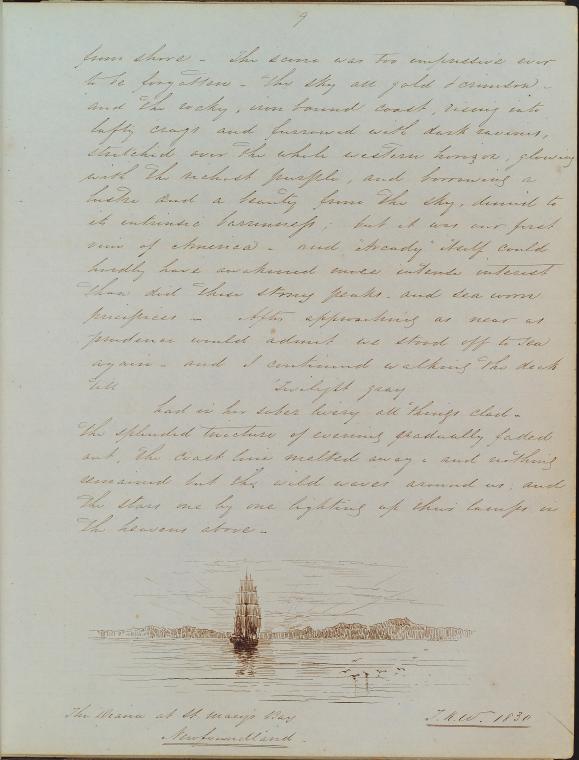 9
from shore - The scene was too impressive ever
to be forgotten - The sky all gold & crimson -
and the rocky, iron bound coast, rising into
lofty crags and furrowed with dark ravines,
stretched over the whole western horizon, glowing
with the richest purple, and borrowing a
lustre and a beauty from the sky, denied to
its intrinsic barrenness; but it was our first
view of America - and "Arcady" itself could
hardly have awakened more intense interest
than did these stony peaks - and sea worn
precipices - After approaching as near as
prudence would admit we stood off to sea
again - and I continued walking the deck
till Twilight gray
had in her sober livery all things clad -
The splendid tincture of evening gradually faded
out, the coast line melted away - and nothing
remained but the wild waves around us, and
the stars one by one lighting up their lamps in
the heavens above -
The Diana at St. Mary's Bay
Newfoundland -
1830